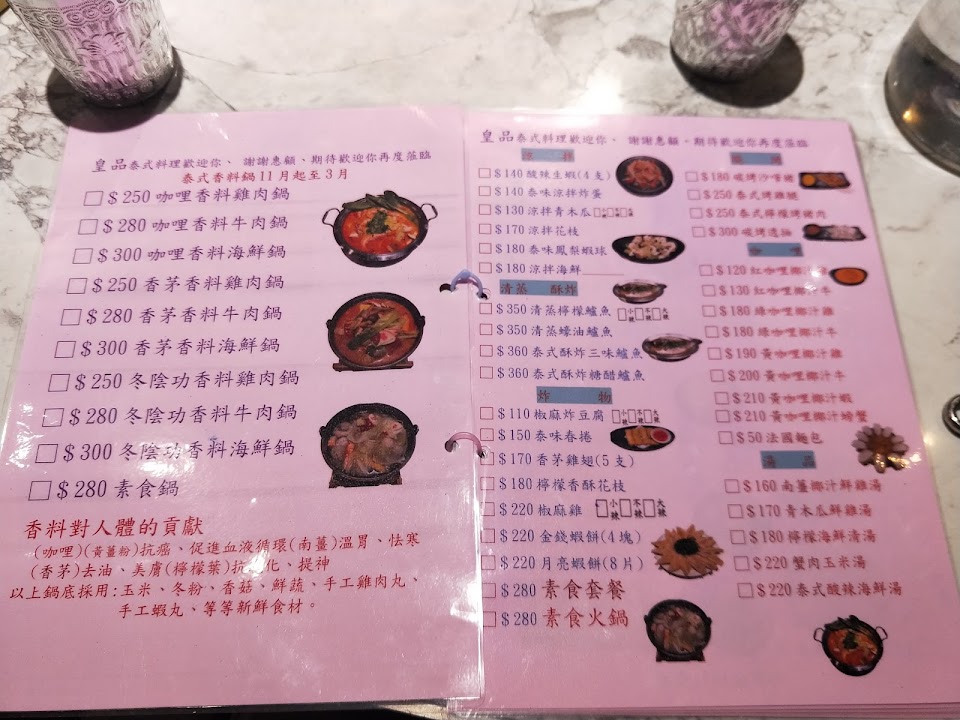 皇品泰式料理歡迎你、 謝謝惠顧、期待歡迎你再度蒞臨
泰式香料鍋11月起至3月
$250咖哩香料雞肉鍋
$280咖哩香料牛肉鍋
$300咖哩香料海鮮鍋
$250香茅香料雞肉鍋
$280香茅香料牛肉鍋
$300香茅香料海鮮鍋
$250冬陰功香料雞肉鍋
$280冬陰功香料牛肉鍋
$300冬陰功香料海鮮鍋
$280素食鍋
香料對人體的貢獻
(咖哩)(黃薑粉)抗癌、促進血液循環(南薑)溫胃、怯寒
(香茅)去油、美膚(檸檬葉)抗 化、提神
以上鍋底採用:玉米、冬粉、香菇、鮮蔬、手工雞肉丸、
手工蝦丸、等等新鮮食材。
皇品泰式料理歡迎你、 謝謝惠顧、期待歡迎你再度蒞臨
$140酸辣生蝦(4支)
$140泰味涼拌炸蛋
$130涼拌青木瓜 小辣 不辣 大辣
$170涼拌花枝
$180泰味鳳梨蝦球
$180涼拌海鮮
清蒸 酥炸
$350清蒸檸檬鱸魚 小辣 不辣 大辣
$350清蒸蠔油鱸魚
$360泰式酥炸三味鱸魚
$360泰式酥炸糖醋鱸魚
炸 物
$110椒麻炸豆腐 小辣 不辣 大辣
$150泰味春捲
$170香茅雞翅(5支)
$180檸檬香酥花枝
$220椒麻雞 小辣 不辣 大辣
$220金錢蝦餅(4塊)
$220月亮蝦餅(8片)
$280素食套餐
$280素食火鍋
$180碳烤沙嗲豬
$250泰式烤雞腿
$250泰式檸檬烤豬肉
$300碳烤透抽
咖 哩
$120紅咖哩椰汁
$130紅咖哩椰汁牛
$180綠咖哩椰汁雞
$180綠咖哩椰汁牛
$190黃咖哩椰汁雞
$200黃咖哩椰汁牛
$210黃咖哩椰汁蝦
$210黃咖哩椰汁螃蟹
$50法國麵包
湯 品
$160南薑椰汁鮮雞湯
$170青木瓜鮮雞湯
$180檸檬海鮮清湯
$220蟹肉玉米湯
$220泰式酸辣海鮮湯